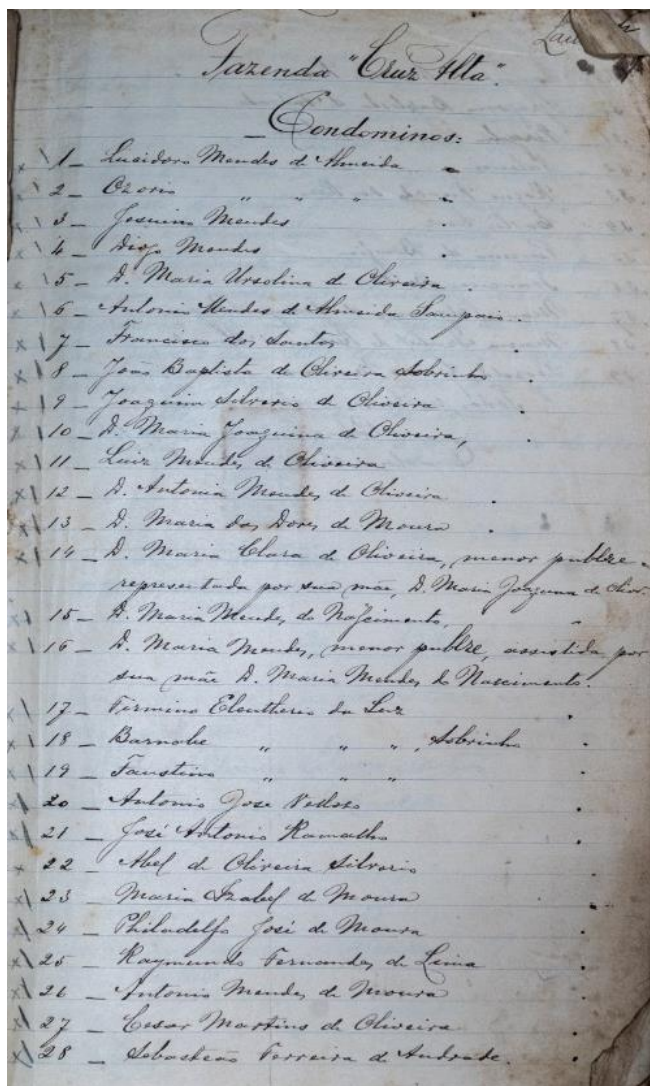 Fazenda "Cruz Alta".
Condominos:
1 - Lucidoro Mendes de Almeida
2 - Ozorio " " "
3 - Jesuino Mendes
4 - Diogo Mendes
5 - D. Maria Ursolina de Oliveira
6 - Antonio Mendes de Almeida Sampaio
7 - Francisco dos Santos
8 - João Baptista de Oliveira Sobrinho
9 - Joaquim Silverio de Oliveira
10 - D. Maria Joaquina de Oliveira,
11 - Luiz Mendes de Oliveira
12 - D. Antonia Mendes de Oliveira
13 - D. Maria das Dores de Moura
14 - D. Maria Clara de Oliveira, menor pubere
representada por sua mãe, D. Maria Joaquina de Olivr.
15 - D. Maria Mendes do Nascimento,
16 - D. Maria Mendes, menor pubere, assistida por
sua mãe D. Maria Mendes do Nascimento.
17 - Firmino Eleutherio da Luz
18 - Barnabe " " ", Sobrinho
19 - Faustino " " "
20 - Antonio José Velloso
21 - José Antonio Ramalho
22 - Abel de Oliveira Silverio
23 - Maria Izabel de Moura
24 - Philadelfo José de Moura
25 - Raymundo Fernandes de Lima
26 - Antonio Mendes de Moura
27 - Cesar Martins de Oliveira
28 - Sebastião Ferreira de Andrade.